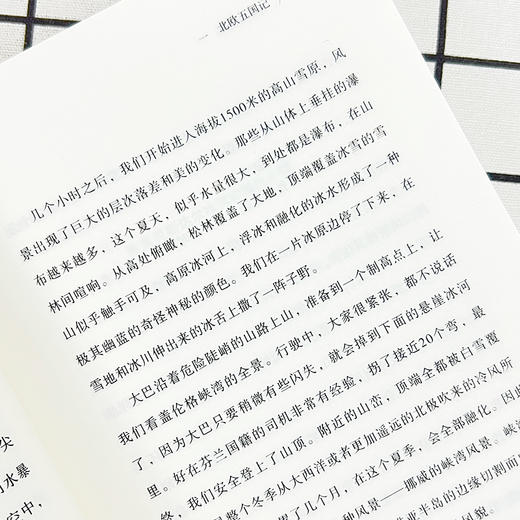 一 北欧五国记
几个小时之后，我们开始进入海拔1500米的高山雪原，风
景出现了巨大的层次落差和美的变化。那些从山体上垂挂的瀑
布越来越多，这个夏天，似乎水量很大，到处都是瀑布，在山
林间喧响。从高处俯瞰，松林覆盖了大地，顶端覆盖冰雪的雪
山似乎触手可及，高原冰河上，浮冰和融化的冰水形成了一种
极其幽蓝的奇怪神秘的颜色。我们在一片冰原边停了下来，在
雪地和冰川伸出来的冰舌上撒了一阵子野。
大巴沿着危险陡峭的山路上山，准备到一个制高点上，让
我们看盖伦格峡湾的全景。行驶中，大家很紧张，都不说话
了，因为大巴只要稍微有些闪失，就会掉到下面的悬崖冰河
里。好在芬兰国籍的司机非常有经验，拐了接近20个弯，最
终，我们安全登上了山顶。附近的山峦，顶端全部被白雪覆
整个冬季从大西洋或者更加遥远的北极吹来的冷风所
了几个月，在这个夏季，会全部融化。因此
种风景——挪威的峡湾风景。峡湾
半岛的边缘切割而
尖
水暴
空中，